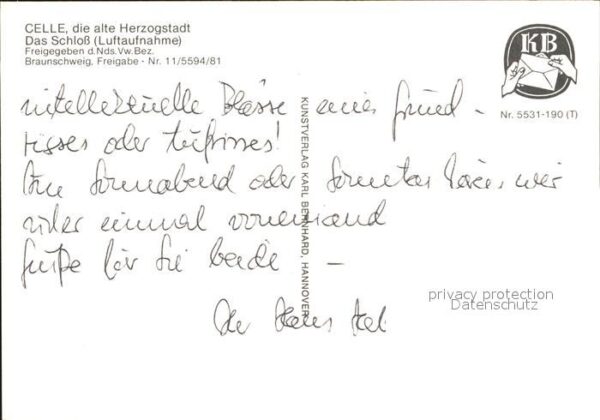 CELLE, die alte Herzogstadt
Das Schloß (Luftaufnahme)
Freigegeben d.Nds.Vw.Bez.
Braunschweig, Freigabe - Nr. 11/5594/81
KB
Nr. 5531-190 (T)
intellektuelle Blässe eines Grund-
risses oder Aufrisses!
Am Sonnabend oder Sonntag hören wir
wieder einmal voneinand
Grüße für Sie beide —
Ihr
KUNSTVERLAG KARL BERNHARD, HANNOVER
privacy protection
Datenschutz